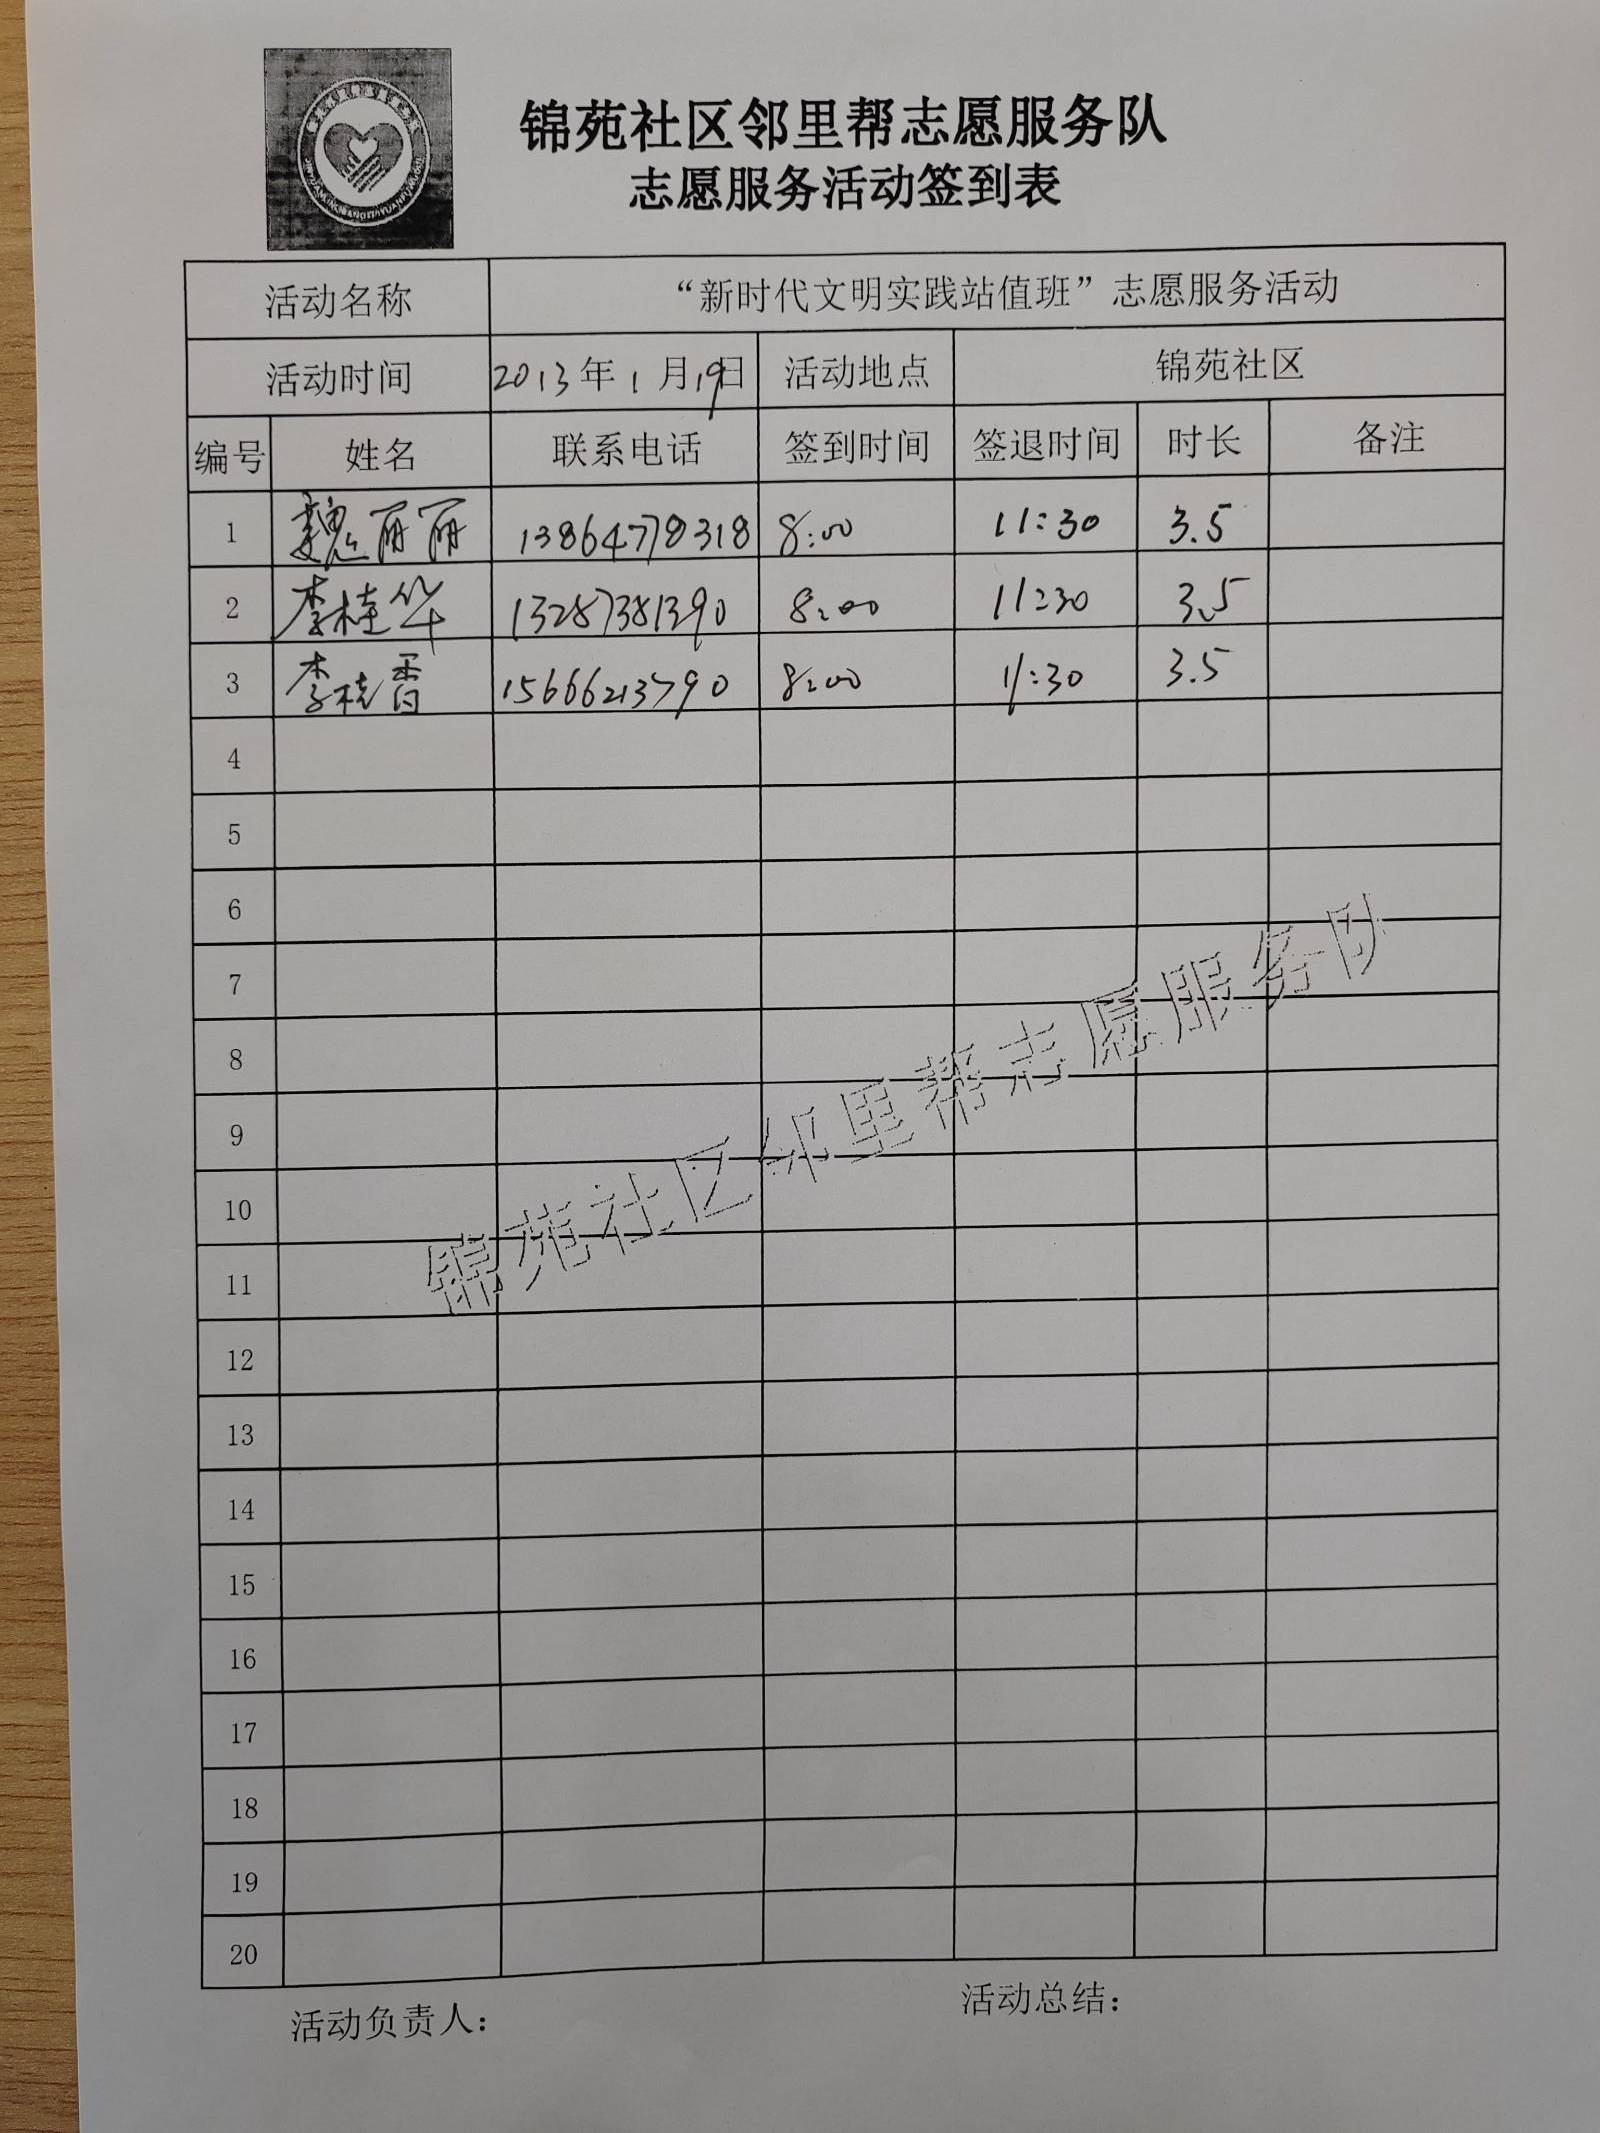 锦苑社区邻里帮志愿服务队
志愿服务活动签到表
活动名称 “新时代文明实践站值班”志愿服务活动
活动时间 2013年1月19日 活动地点 锦苑社区
编号 姓名 联系电话 签到时间 签退时间 时长 备注
1 魏丽丽 13864778318 8:00 11:30 3.5
2 李桂华 13287381390 8:00 11:30 3.5
3 李桂香 15666213790 8:00 11:30 3.5
4
5
6
7
8
9
10
11
12
13
14
15
16
17
18
19
20
锦苑社区邻里帮志愿服务队
活动负责人： 活动总结：